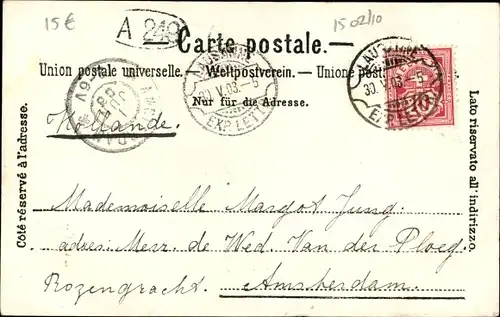 15€
A 249
1502/10
Carte postale.—
Union postale universelle. — Weltpostverein. — Unione posta
Nur für die Adresse.
LAUSANNE
30 V. 03 - 5
EXP. LETT
LAUSANNE
30. V. 03 - 5
EXP. LETT
10
Hollande.
Côté réservé à l'adresse.
Lato riservato all' indirizzo.
Mademoiselle Margot Jung.
adres: Mevr. de Wed. Van der Ploeg.
Rozengracht. Amsterdam.